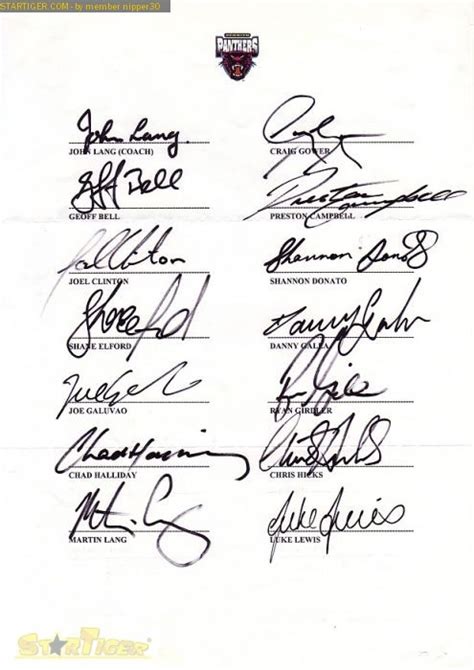 STARTIGER.COM - by member nipper30
PANTHERS
John Lang
JOHN LANG (COACH)
CRAIG GOWER
Geoff Bell
GEOFF BELL
Preston Campbell
PRESTON CAMPBELL
Joel Clinton
JOEL CLINTON
Shannon Donato
SHANNON DONATO
SHANE ELFORD
Danny Galea
DANNY GALEA
JOE GALUVAO
RYAN GIRDLER
CHAD HALLIDAY
CHRIS HICKS
MARTIN LANG
Luke Lewis
LUKE LEWIS
STARTIGER.COM